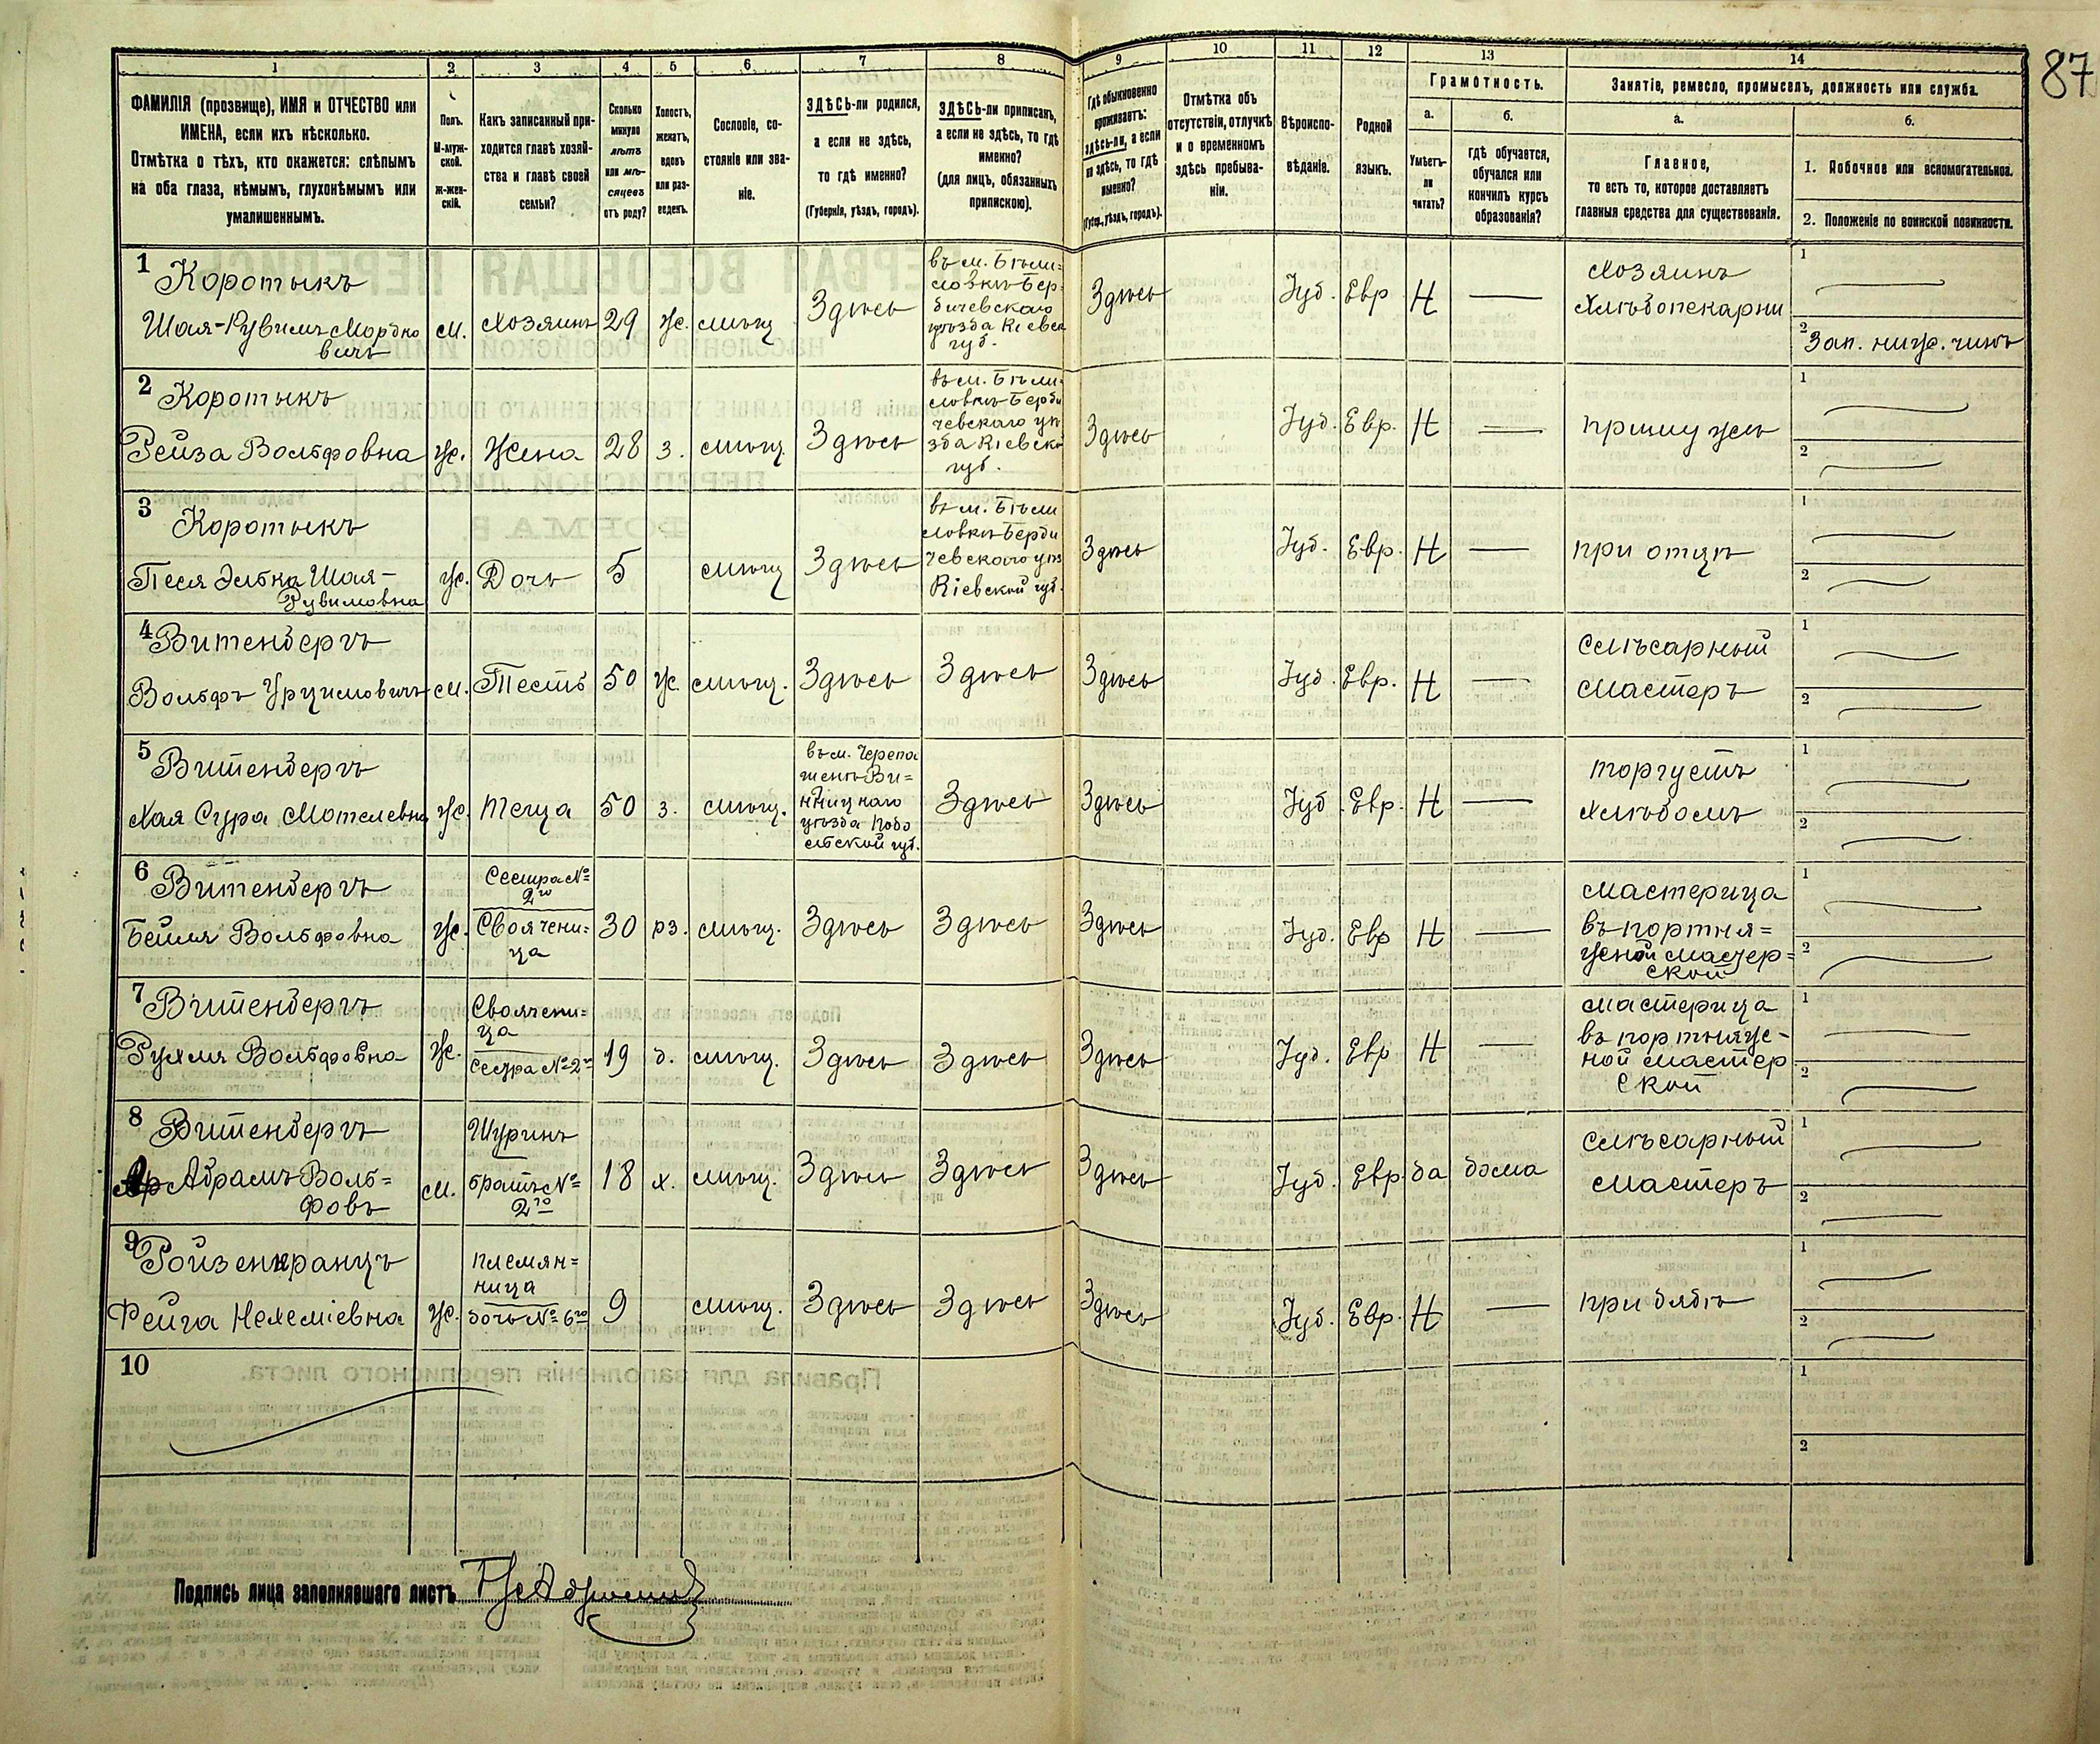 87
1 2 3 4 5 6 7 8 9 10 11 12 13 14
ФАМИЛІЯ (прозвище), ИМЯ и ОТЧЕСТВО или
ИМЕНА, если ихъ нѣсколько.
Отмѣтка о тѣхъ, кто окажется: слѣпымъ
на оба глаза, нѣмымъ, глухонѣмымъ или
умалишеннымъ.
Полъ.
М-муж-
ской.
Ж-жен-
скій.
Какъ записанный при-
ходится главѣ хозяй-
ства и главѣ своей
семьи?
Сколько
минуло
лѣтъ
или мѣ-
сяцевъ
отъ роду?
Холостъ,
женатъ,
вдовъ
или раз-
веденъ.
Сословіе, со-
стояніе или зва-
ніе.
ЗДѢСЬ-ли родился,
а если не здѣсь,
то гдѣ именно?
(Губернія, уѣздъ, городъ).
ЗДѢСЬ-ли приписанъ,
а если не здѣсь, то гдѣ
именно?
(для лицъ, обязанныхъ
припискою).
Гдѣ обыкновенно
проживаетъ:
здѣсь-ли, а если
не здѣсь, то гдѣ
именно?
(Губер., уѣздъ, городъ).
Отмѣтка объ
отсутствіи, отлучкѣ
и о временномъ
здѣсь пребыва-
ніи.
Вѣроиспо-
вѣданіе.
Родной
языкъ.
Грамотность.
а.
Умѣетъ-
ли
читать?
б.
гдѣ обучается,
обучался или
кончилъ курсъ
образованія?
Занятіе, ремесло, промыселъ, должность или служба.
а.
Главное,
то есть то, которое доставляетъ
главныя средства для существованія.
б.
1. Побочное или вспомогательное.
2. Положеніе по воинской повинности.
1 Коротыкъ
Шая-Рувимъ Мордко
вичъ
м. хозяинъ 29 ж. мѣщ Здѣсь
въ м. Бѣли=
ловкѣ Бер=
дичевскаго
уѣзда Кіевск
губ.
Здѣсь Іуд. Евр Н —
хозяинъ
хлѣбопекарни
1
2 Зап. ниж. чинъ
2 Коротыкъ
Рейза Вольфовна ж. жена 28 з. мѣщ. Здѣсь
въ м. Бѣли-
ловкѣ Берди
чевскаго уѣ
зда Кіевско
губ.
Здѣсь Іуд. Евр. Н —
при мужѣ
1
2
3 Коротыкъ
Песя Элька Шая-
Рувимовна
ж. Дочь 5 мѣщ Здѣсь
въ м. Бѣли
ловкѣ Берди
чевскаго уѣз
Кіевской губ.
Здѣсь Іуд. Евр. Н —
при отцѣ
1
2
4 Витенбергъ
м. Тесть 50 ж. мѣщ. Здѣсь Здѣсь Здѣсь Іуд. Евр. Н —
слѣсарный
мастеръ
1
2
5 Витенбергъ
Хая Сура Мотелевна ж. теща 50 з. мѣщ.
въ м. Черепа
шенцѣ Ви=
нницкаго
уѣзда Подо
льской губ.
Здѣсь Здѣсь Іуд. Евр. Н —
торгуетъ
хлѣбомъ
1
2
6 Витенбергъ
Бейля Вольфовна ж.
Сестра №
2го
Своячени=
ца
30 рз. мѣщ. Здѣсь Здѣсь Здѣсь Іуд. Евр Н —
мастерица
въ портня=
жной мастер=
ской
1
2
7 Витенбергъ
Рухля Вольфовна ж.
Своячени=
ца
Сестра № 2го
19 д. мѣщ. Здѣсь Здѣсь Здѣсь Іуд. Евр Н —
мастерица
въ портняж-
ной мастер
ской
1
2
8 Витенбергъ
Абрамъ Воль=
фовъ
м.
Шуринъ
братъ №
2го
18 х. мѣщ. Здѣсь Здѣсь Здѣсь Іуд. Евр да дома
слѣсарный
мастеръ
1
2
9 Ройзенкранцъ
Фейга Нехеміевна ж.
племян=
ница
дочь № 6го
9 мѣщ. Здѣсь Здѣсь Здѣсь Іуд. Евр. Н —
при дядѣ
1
2
10
1
2
Подпись лица заполнявшаго листъ